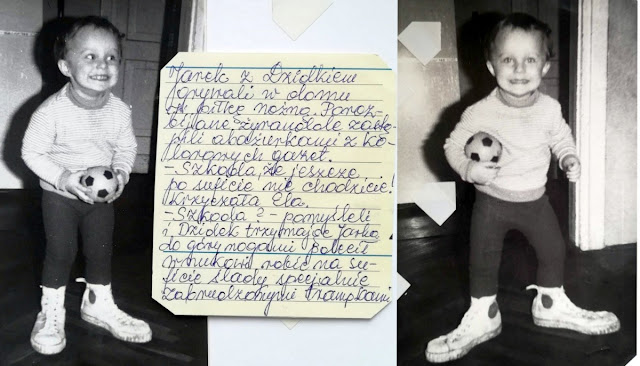 Jarek z Dziolkiem
fogrywali w domu
w piłkę nożną. Poroz-
bijane żyrandole zastą-
pili abażurkami z ko-
lorowych gazet.
- Szkoda, że jeszcze
po suficie nie chodzicie!
krzyczała Ela.
- Szkoda? - pomyśleli
i Dziolek trzymając Jarka
do góry nogami polecił
wnukowi robić na su-
ficie ślady specjalnie
zabrudzonymi trampkami